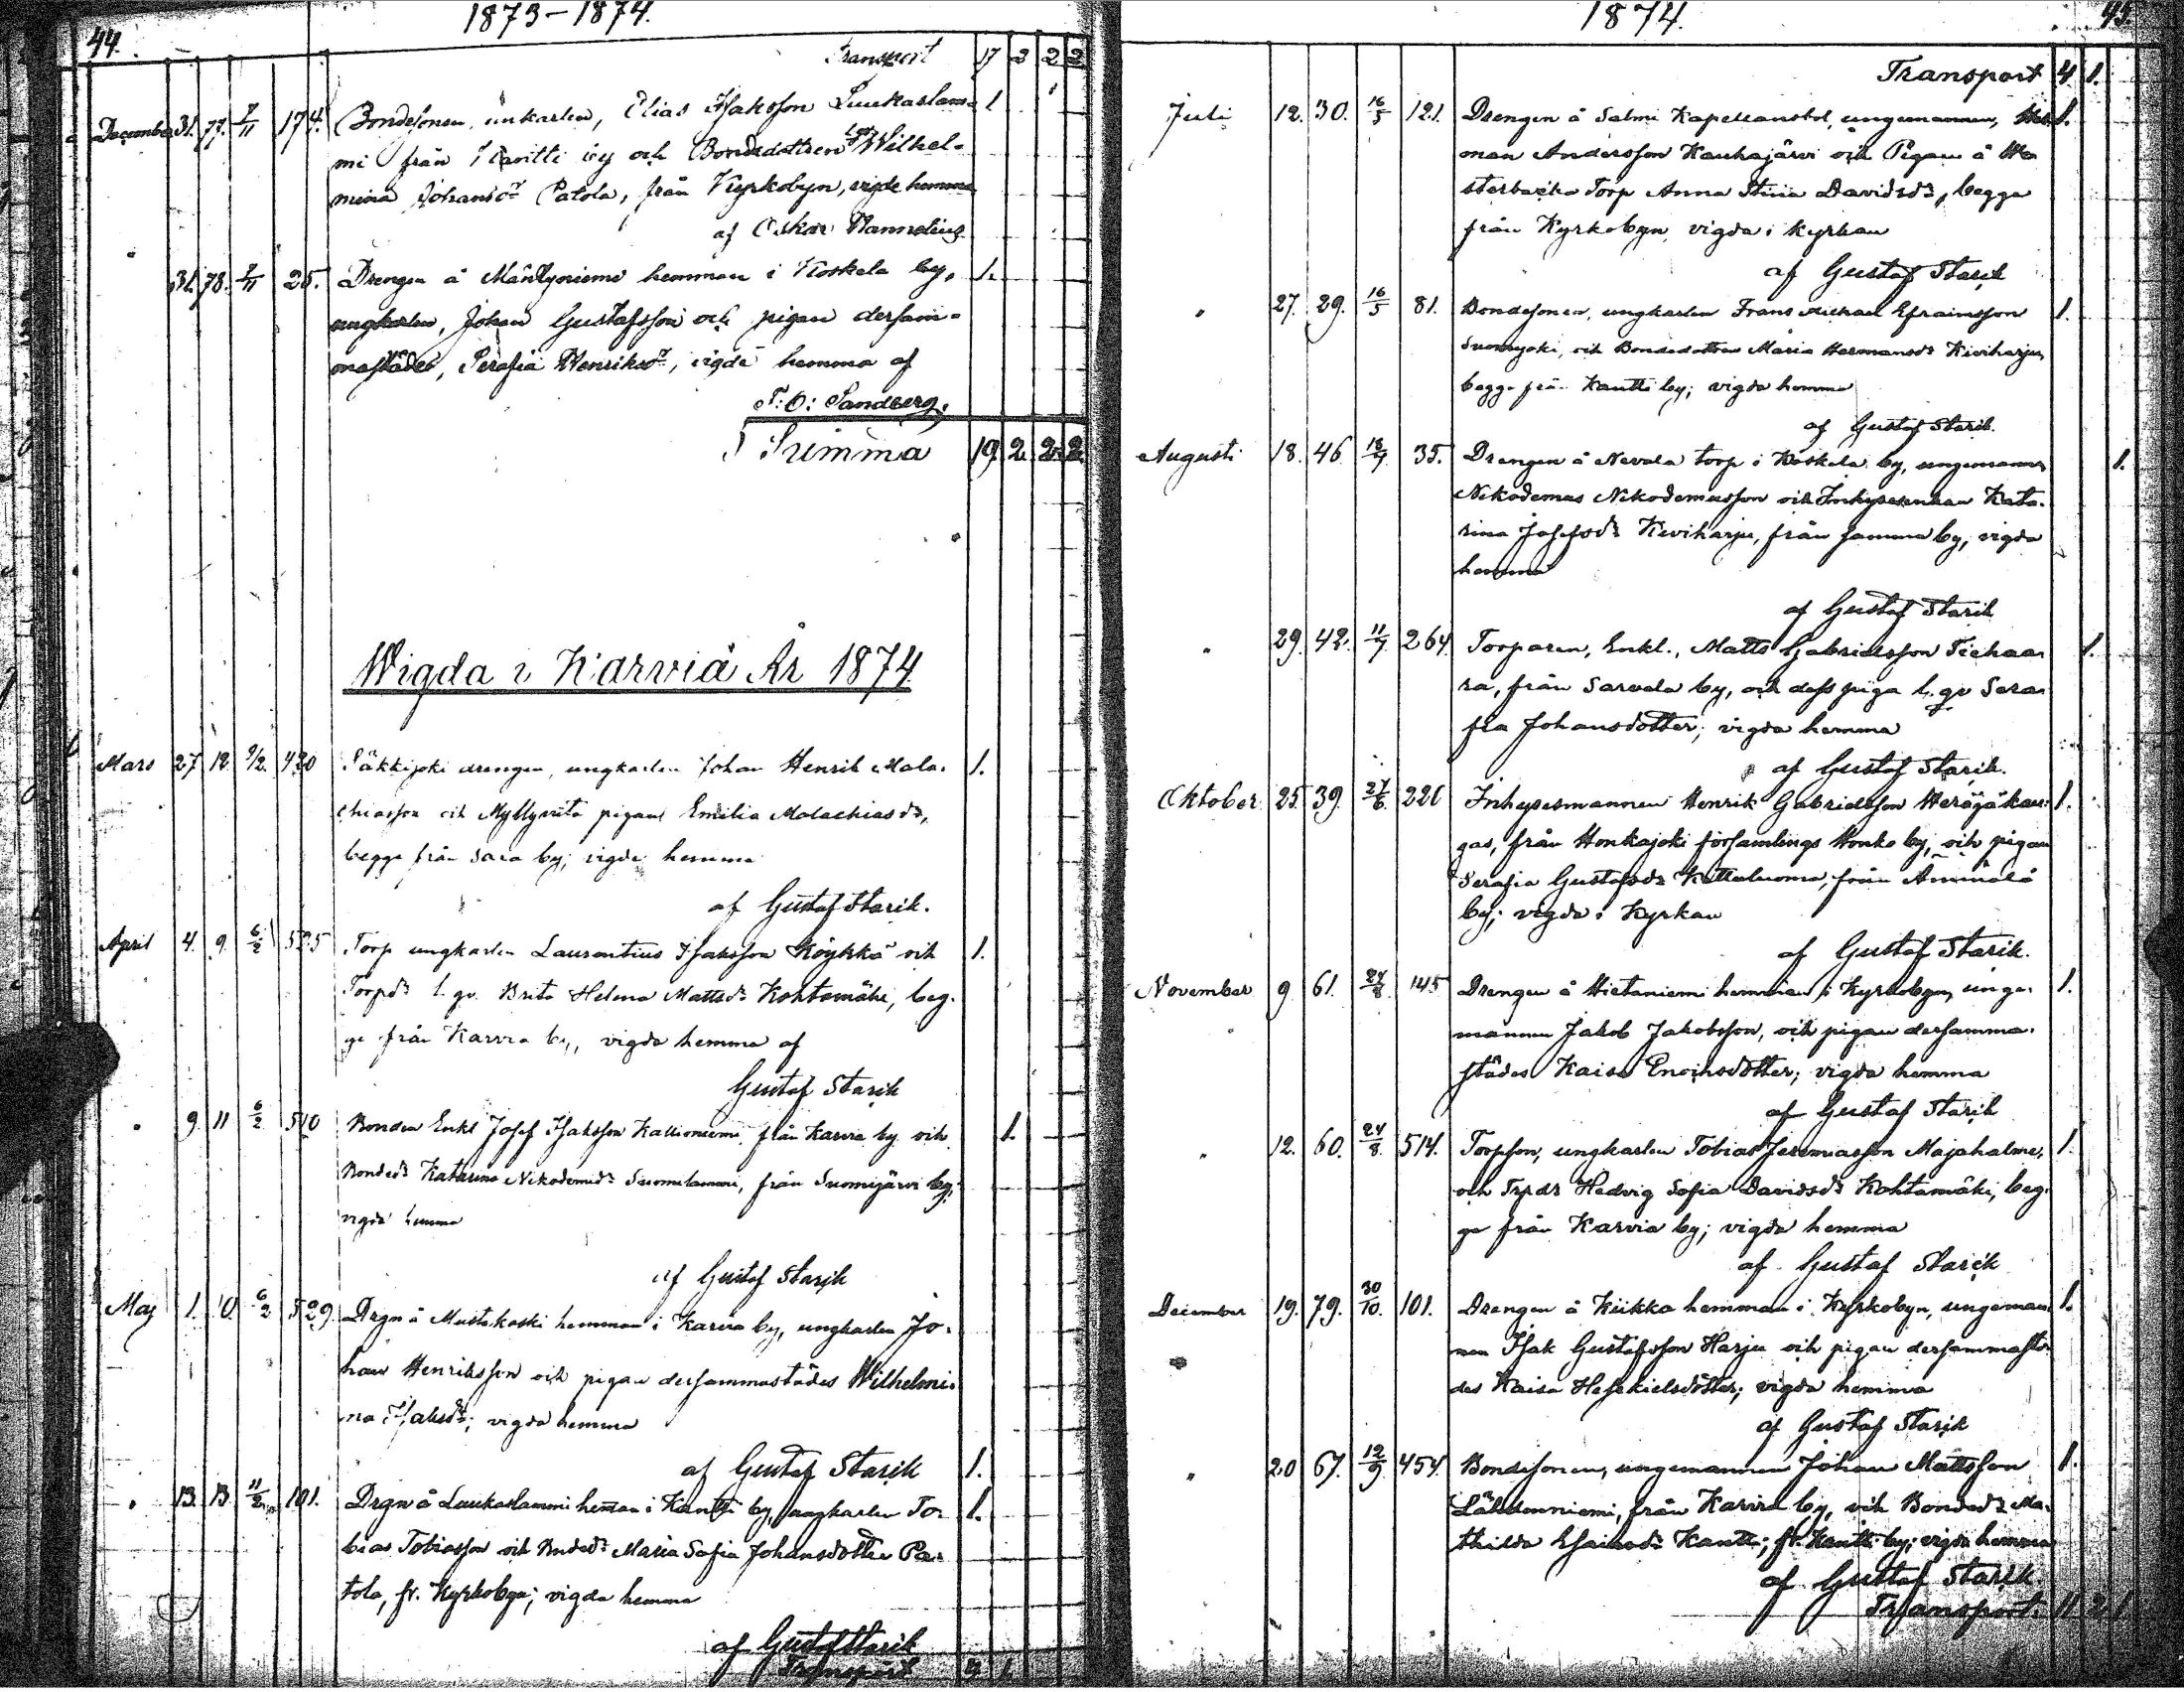 44.
1873-1874.
Transport 17 2 2 2
December 31. 77. 7/11 174. Bondesonen, unkarlen, Elias Isaksson Luukaslam- 1
mi från Kantti by och Bondedottren Wilhel-
mina Johansdr Patola, från Kyrkobyn, vigde hemma
af Oskar Hannelius
31. 78. 7/11 25. Drengen å Mäntyniemi hemman i Koskela by, 1.
ungkarlen, Johan Gustafsson och pigan dersam-
mastädes, Serafia Henriksdr, vigde hemma af
F: O: Sandberg.
Summa 19. 2. 2. 2.
Wigda i Karvia År 1874
Mars 27 12 9/2. 430 Säkkijoki drengen, ungkarlen Johan Henrik Mala- 1.
chiasson och Myllyviita pigan Emilia Malachiasdr,
begge från Sara by; vigda hemma
af Gustaf Starik.
April 4. 9. 6/2 525 Torp ungkarlen Laurentius Isaksson Köykkä och 1.
Torpdr l. qv. Brita Helena Mattsdr Kohtamäki, beg-
ge från Karvia by, vigda hemma af
Gustaf Starik
" 9. 11 6/2 510 Bonden Enkl Josef Isaksson Kallioniemi, från Karvia by och 1.
Bondedr Katarina Nikodemusdr Suomelanmi, från Suomijärvi by;
vigda hemma
af Gustaf Starik
Maj 1. 10. 6/2 529. Drgn å Mustakoski hemman i Karvia by, ungkarlen Jo-
han Henriksson och pigan dersammastädes Wilhelmi-
na Isaksdr; vigda hemma
af Gustaf Starik 1.
" 13. 13 11/2 101. Drgn å Luukaslammi heman i Kantti by, ungkarlen To- 1.
bias Tobiasson och Bndedr Maria Sofia Johansdotter Pa-
tola, fr. Kyrkobyn; vigda hemma
af Gustaf Starik
Transport 4 1.
1874.
45.
Transport 4 1.
Juli 12. 30. 16/5 121. Drengen å Salmi Kapellansbol, ungemannen, Her- 1.
man Andersson Kauhajärvi och Pigan å We-
sterbacka Torp Anna Stina Davidsdr, begge
från Kyrkobyn, vigda i kyrkan
af Gustaf Starik
" 27. 29. 16/5 81. Bondesonen, ungkarlen Frans Michael Efraimsson 1.
Suomijoki, och Bondedottren Maria Hermansdr Kiviharju,
begge från Kantti by; vigda hemma
af Gustaf Starik.
Augusti 18. 46 18/7. 35. Drengen å Nevala torp i Koskela by, ungemannen 1.
Nikodemus Nikodemusson och Inhysesenkan Kata-
rina Josefsdr Kiviharju, från samma by, vigda
hemma
af Gustaf Starik
" 29. 42. 11/7. 264. Torparen, Enkl., Matts Gabrielsson Tiehaa- 1.
ra, från Sarvela by, och dess piga l. qv Sera-
fia Johansdotter; vigda hemma
af Gustaf Starik.
Oktober 25. 39. 27/6. 226 Inhysesmannen Henrik Gabrielsson Heräjäkan- 1.
gas, från Honkajoki församlings Honko by, och pigan
Serafia Gustafsdr Kattaluoma, från Ämmälä
by; vigda i Kyrkan
af Gustaf Starik.
November 9 61. 24/8. 145 Drengen å Hietaniemi hemman i Kyrkobyn, unge- 1.
mannen Jakob Jakobsson, och pigan dersamma-
städes Kaisa Enoksdotter; vigda hemma
af Gustaf Starik
" 12. 60. 24/8. 514. Torpson, ungkarlen Tobias Jeremiasson Majahalme, 1.
och Trpdr Hedvig Sofia Davidsdr Kohtamäki, beg-
ge från Karvia by; vigda hemma
af Gustaf Starik
December 19. 79. 30/10. 101. Drengen å Kiikka hemman i Kyrkobyn, ungeman- 1.
nen Isak Gustafsson Harju och pigan dersammastä-
des Kaisa Hesekielsdotter; vigda hemma
af Gustaf Starik
" 20 67. 12/9 454. Bondesonen, ungemannen Johan Mattsson 1.
Lähdenniemi, från Karvia by, och Bondedr Ma-
thilda Esaiasdr Kantti; fr. Kantti by; vigda hemma
af Gustaf Starik.
Transport. 11. 2. 1.